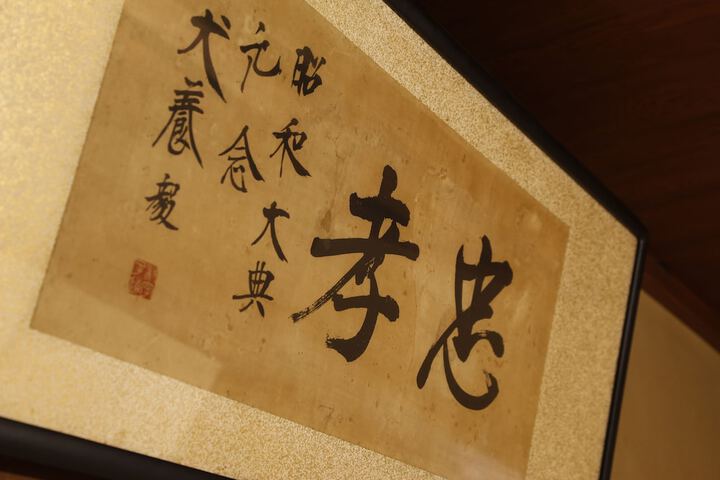 忠孝
昭和大典
記念
犬養毅